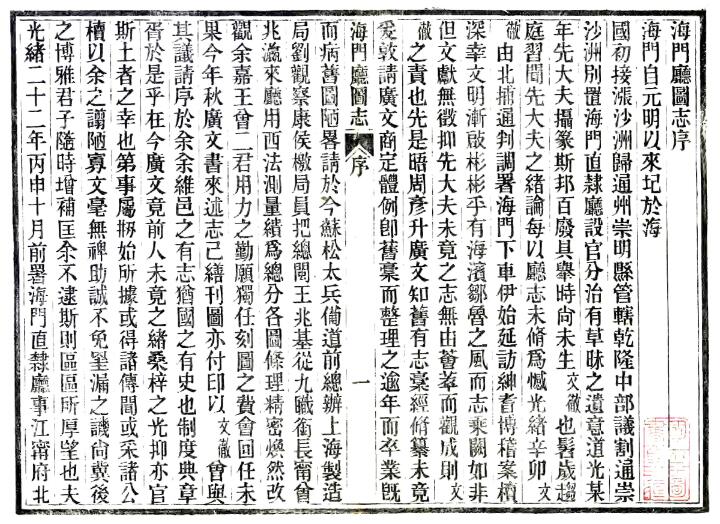 海門廳圖志序
海門自元明以來圮於海
國初接漲沙洲歸通州崇明縣管轄乾隆中部議割通崇
沙洲別置海門直隸廳設官分治有草昧之遺意道光某
年先大夫攝篆斯邦百廢具舉時尚未生文徹也髫歲趨
庭習聞先大夫之緒論每以廳志未脩爲憾光緒辛卯文
徹由北捕通判調署海門下車伊始延訪紳耆博稽案牘
深幸文明漸啟彬彬乎有海濱鄒魯之風而志乘闕如非
但文獻無徵抑先大夫未竟之志無由薈萃而觀成則文
徹之責也先是晤周彥升廣文知舊有志稾經脩纂未竟
爰敦請廣文商定體例卽舊稾而整理之逾年而卒業旣
海門廳圖志 序 一
而病舊圖陋畧請於今蘇松太兵備道前總辦上海製造
局劉觀察康侯檄局員把總閻王兆基從九職銜長甯曾
兆瀛來廳用西法測量繕爲總分各圖條理精密煥然改
觀余嘉王曾二君用力之勤願獨任刻圖之費會回任未
果今年秋廣文書來述志已繕刊圖亦付印以文徹曾與
其議請序於余余維邑之有志猶國之有史也制度典章
胥於是乎在今廣文竟前人未竟之緒桑梓之光抑亦官
斯土者之幸也第事屬刱始所據或得諸傳聞或采諸公
牘以余之譾陋專文毫無裨助誠不免罣漏之譏尚冀後
之博雅君子隨時增補匡余不逮斯則區區所厚望也夫
光緒二十二年丙申十月前署海門直隸廳事江甯府北